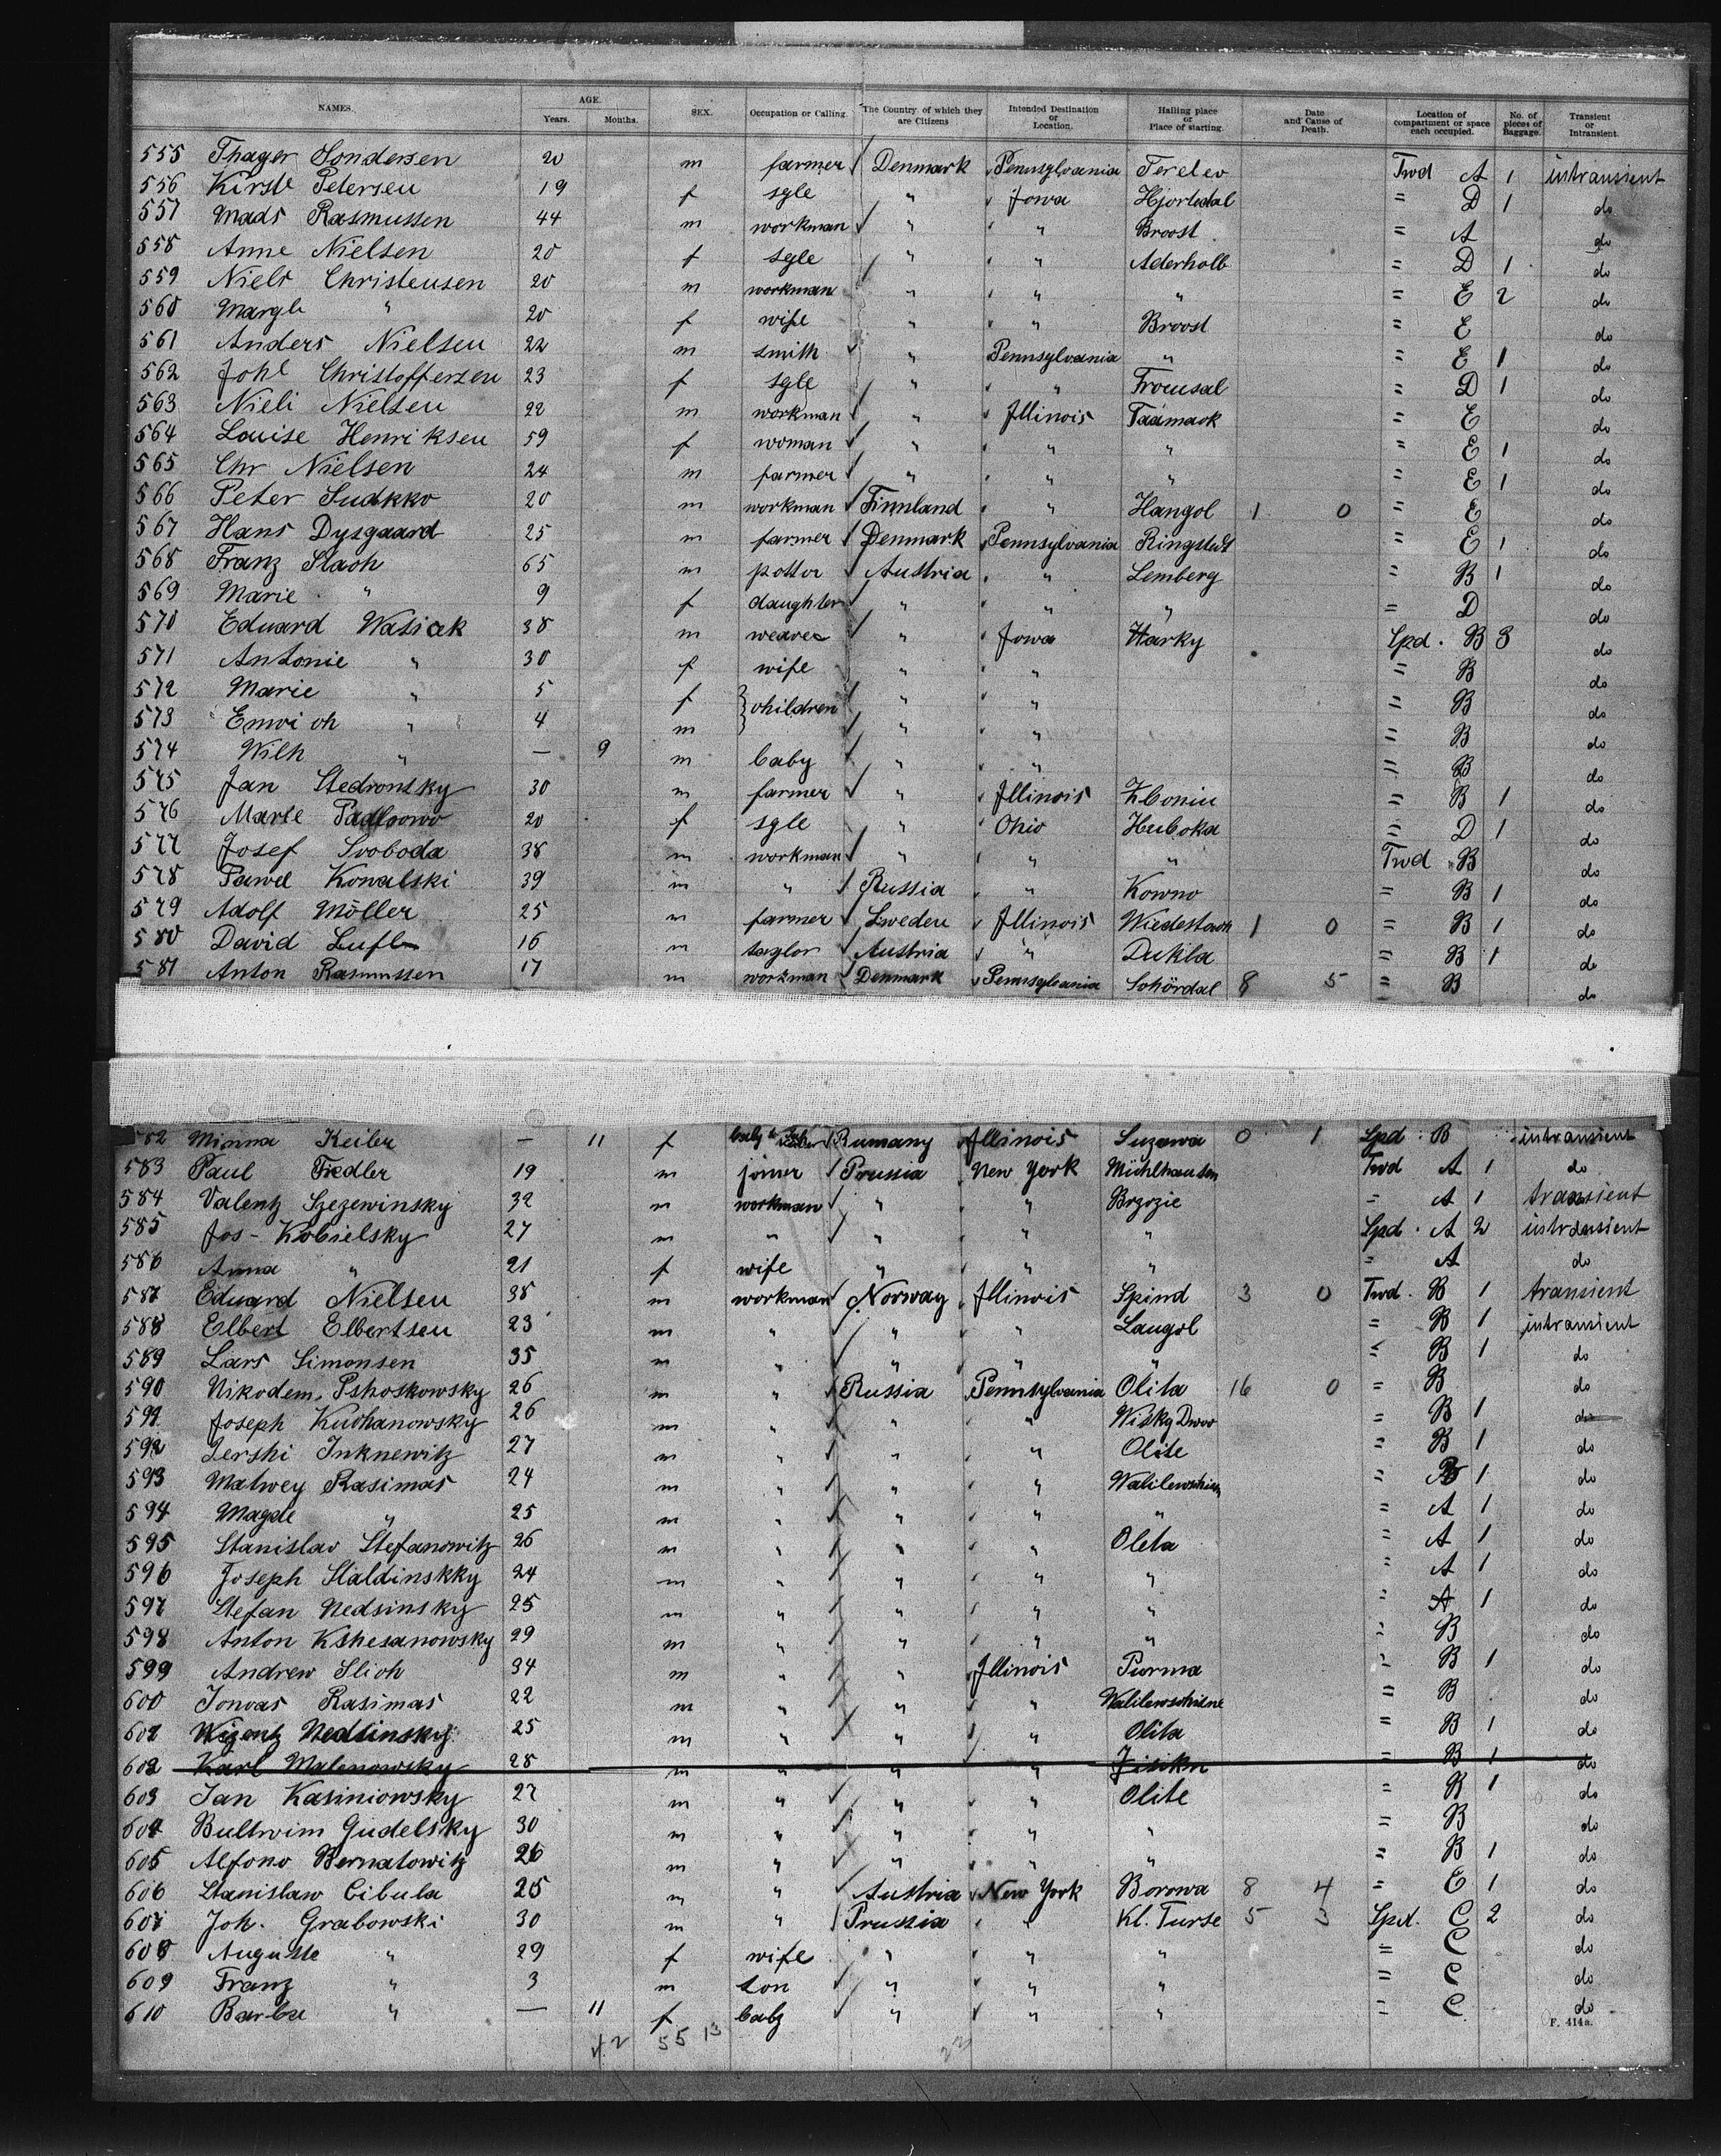 NAMES. AGE. Years. Months. SEX. Occupation or Calling. The Country of which they are Citizens Intended Destination or Location. Hailing place or Place of starting. Date and Cause of Death. Location of compartment or space each occupied. No. of pieces of Baggage. Transient or Intransient.
555 Thager Sondersen 20 m farmer Denmark Pennsylvania Terelev Twd A 1 intransient
556 Kirste Petersen 19 f sgle " Iowa Hjortedal = D 1 do
557 Mads Rasmussen 44 m workman " " Broost = A do
558 Anne Nielsen 20 f sgle " " Aderholb = D 1 do
559 Niels Christensen 20 m workman " " " = E 2 do
560 Margh " 20 f wife " " Broost = E do
561 Anders Nielsen 22 m smith " Pennsylvania " = E 1 do
562 Johe Christoffersen 23 f sgle " " = D 1 do
563 Nieli Nielsen 22 m workman " Illinois Taamark = E do
564 Louise Henriksen 59 f woman " " " = E 1 do
565 Chr Nielsen 24 m farmer " " " = E 1 do
566 Peter Sudkko 20 m workman Finnland " Hangol 1 0 = E do
567 Hans Dysgaard 25 m farmer Denmark Pennsylvania Ringstedt = E 1 do
568 Franz Slach 65 m potter Austria " Lemberg = B 1 do
569 Marie " 9 f daughter " " " = D do
570 Eduard Wasick 38 m weaver " Iowa Harky Spd. B 3 do
571 Antonie " 30 f wife " " = B do
572 Marie " 5 f children " " = B do
573 " 4 m " " = B do
574 Wilh " — 9 m baby " " = B do
575 Jan Stedronsky 30 m farmer " Illinois = B 1 do
576 Marie 20 f sgle " Ohio Huboka = D 1 do
577 Josef Svoboda 38 m workman " " " Twd B do
578 Pawel Kowalski 39 m " Russia " Kowno = B 1 do
579 Adolf Möller 25 m farmer Sweden Illinois 1 0 = B 1 do
580 David Lufl 16 m taylor Austria " Dukla = B 1 do
581 Anton Rasmussen 17 m workman Denmark Pennsylvania Schördal 8 5 = B do
582 Minna Keiler — 11 f Rumany Illinois Suzawa 0 1 Spd. B intransient
583 Paul Fiedler 19 m joiner Prussia New York Mühlhausen Twd A 1 do
584 Valentz Szezewinsky 32 m workman " " Brzozie = A 1 transient
585 Jos - Kobielsky 27 m " " " " Spd. A 2 intransient
586 Anna " 21 f wife " " " = A do
587 Eduard Nielsen 38 m workman Norway Illinois Spind 3 0 Twd. B 1 transient
588 Elbert Elbertsen 23 m " " " Laugol = B 1 intransient
589 Lars Simonsen 35 m " " " " = B 1 do
590 Nikodem Pshoskowsky 26 m " Russia Pennsylvania Olita 16 0 = B do
591 Joseph Kuchanowsky 26 m " " " Wisky Dwoo = B 1 do
592 Jershi Inknewitz 27 m " " " Olite = B 1 do
593 Matwey Rasimas 24 m " " " = B 1 do
594 Magde " 25 m " " " " = A 1 do
595 Stanislav Stefanowitz 26 m " " " Oleta = A 1 do
596 Joseph Staldinskky 24 m " " " " = A 1 do
597 Stefan Nedsinsky 25 m " " " " = A 1 do
598 Anton Kshesanowsky 29 m " " " " = B do
599 Andrew Slich 34 m " " Illinois Purma = B 1 do
600 Jonvas Rasimas 22 m " " " Walilewschisne = B do
601 Wizentz Nedsinsky 25 m " " " Olita = B 1 do
602 Karl Malenowsky 28 m " " " = B 1 do
603 Jan Kasiniowsky 27 m " " " Olite = B 1 do
604 Bultwim Gudelsky 30 m " " " " = B do
605 Alfono Bernatowitz 26 m " " " " = B 1 do
606 Stanislaw Cibula 25 m " Austria New York Borowa 8 4 = E 1 do
607 Joh. Grabowski 30 m " Prussia " Kl. Turse 5 3 Spd. C 2 do
608 Auguste " 29 f wife " " " = C do
609 Franz " 3 m son " " " = C do
610 Barba " — 11 f baby " " " = C do
F. 414a.
42 55 13 23